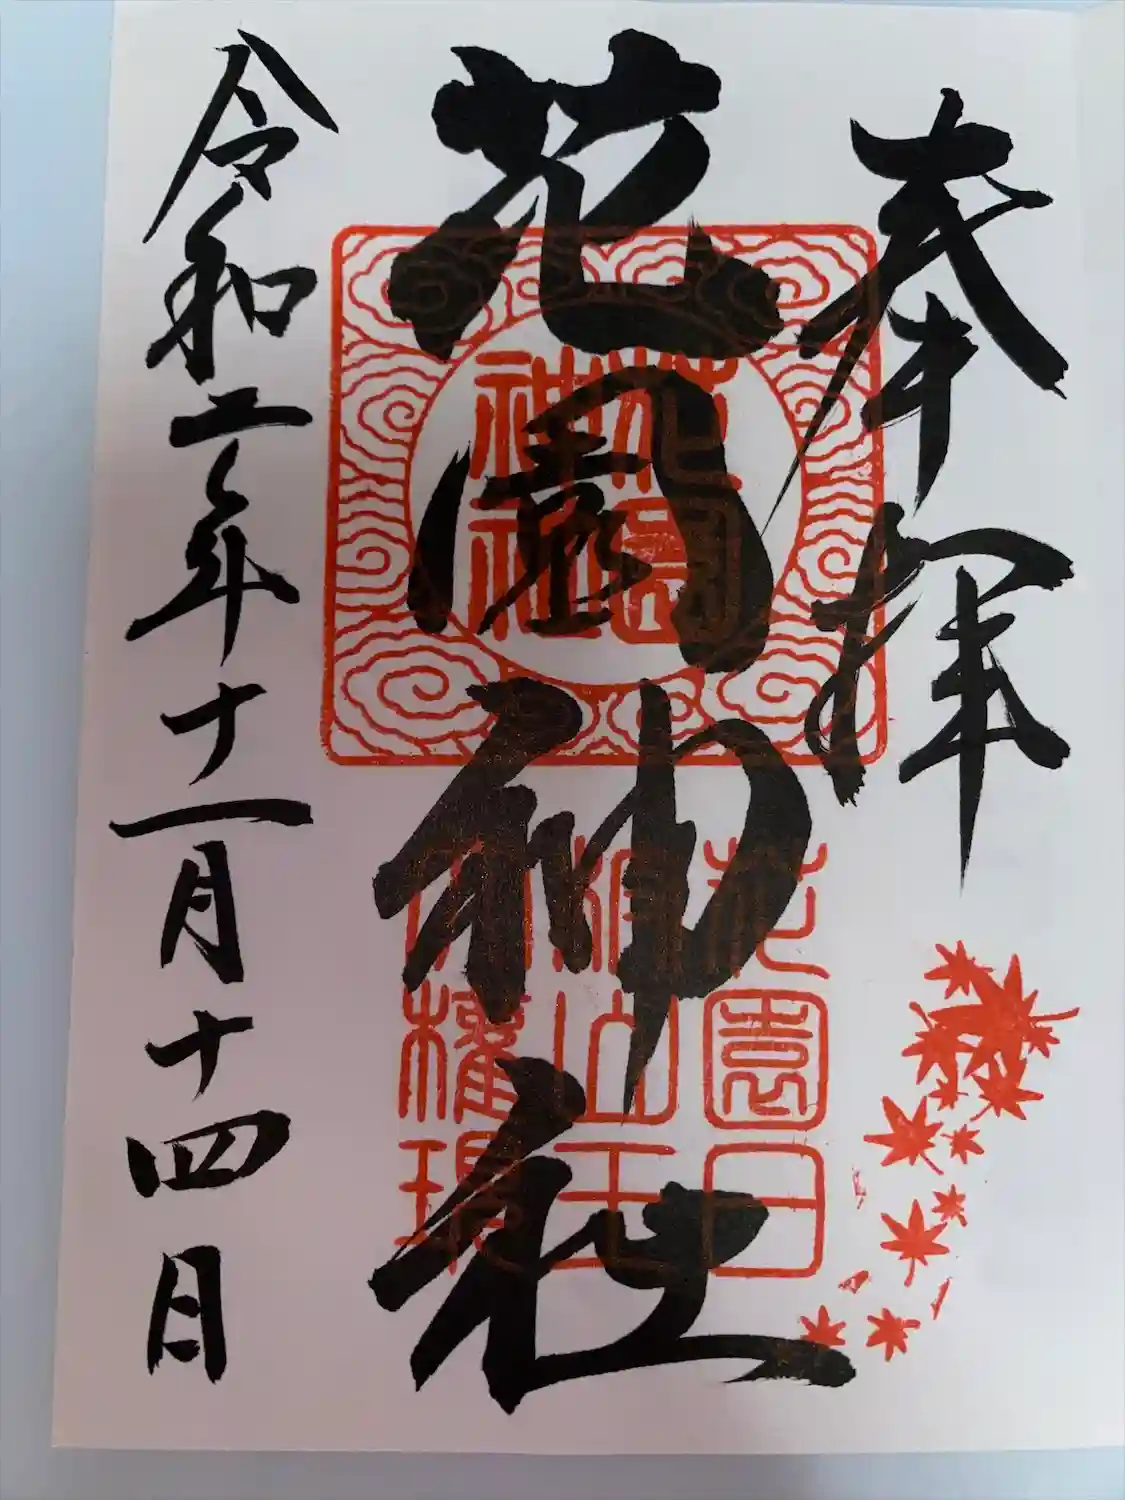 奉拝
花園神社
令和二年十一月十四日
花園
神社
花園日
山王
權現